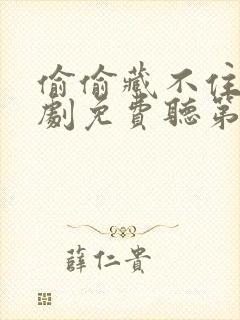 偷偷藏不住
劇免費聽第
薛仁貴